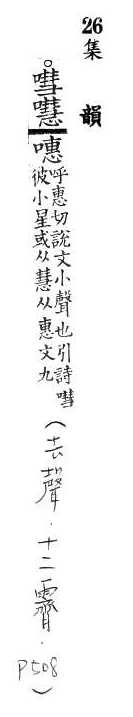 26
集韻
。嘒嚖㗭呼惠切說文小聲也引詩嘒
彼小星或从慧从惠文九
（去聲．十二霽．
P508）